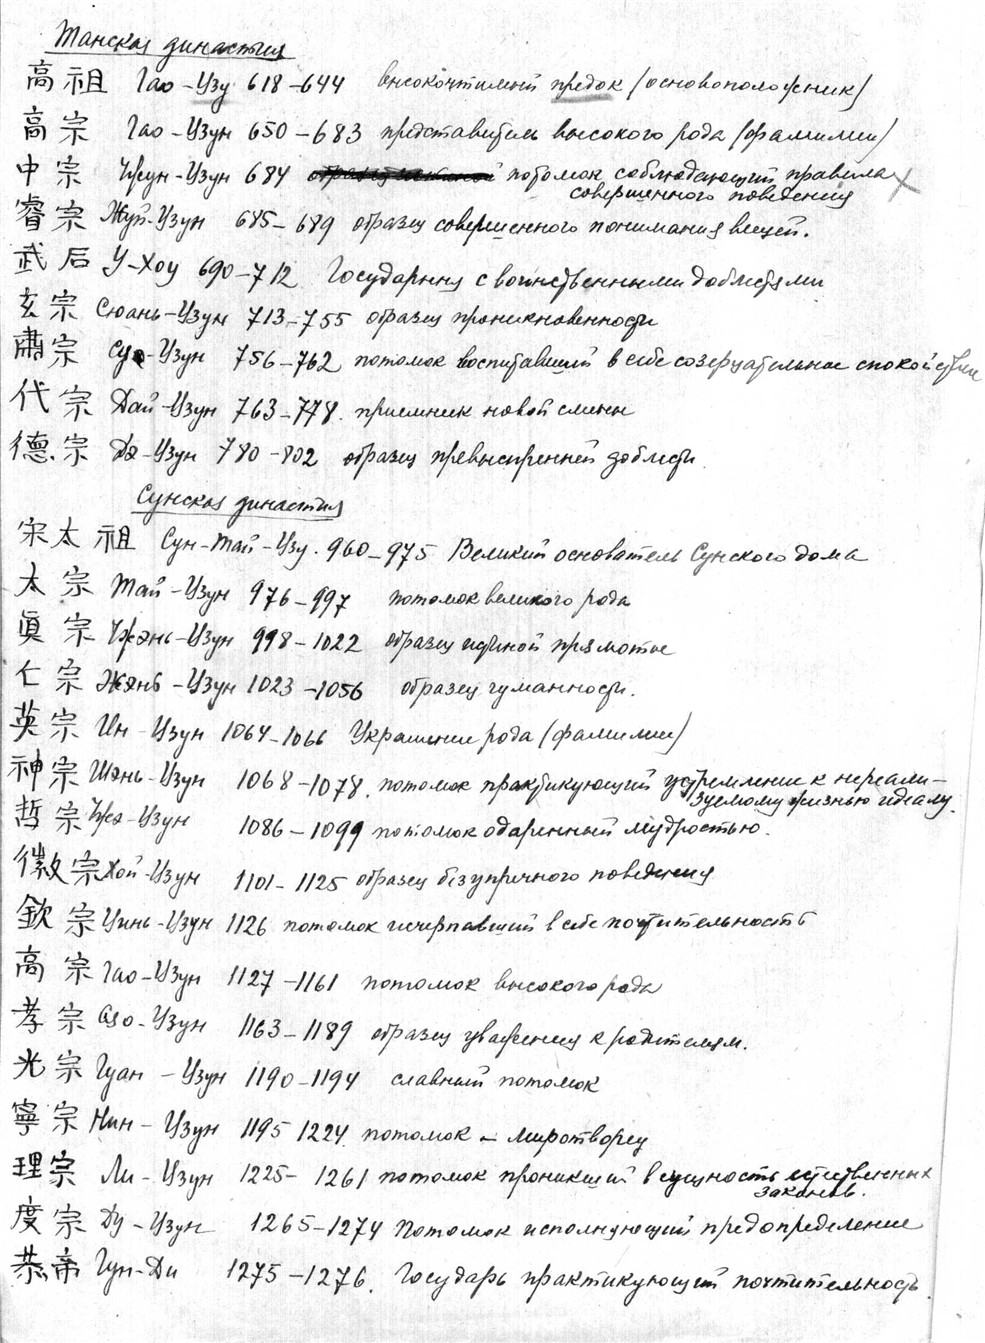 Танская династия
高祖 Гао-Цзу 618-644 высокочтимый предок (основоположник)
高宗 Гао-Цзун 650-683 представитель высокого рода (фамилии)
中宗 Чжун-Цзун 684 потомок соблюдающий правила
совершенного поведения
睿宗 Жуй-Цзун 685-689 образец совершенного понимания вещей.
武后 У-Хоу 690-712 Государыня с воинственными доблестями
玄宗 Сюань-Цзун 713-755 образец проникновенности
肅宗 Су-Цзун 756-762 потомок воспитавший в себе созерцательное спокойствие
代宗 Дай-Цзун 763-778. приемник новой смены
德宗 Дэ-Цзун 780-802 образец превыспренней доблести
Сунская династия
宋太祖 Сун-Тай-Цзу. 960-975 Великий основатель Сунского дома
太宗 Тай-Цзун 976-997 потомок великого рода
眞宗 Чжэнь-Цзун 998-1022 образец истиной прямоты
仁宗 Жэнь-Цзун 1023-1056 образец гуманности.
英宗 Ин-Цзун 1064-1066 Украшение рода (фамилии)
神宗 Шэнь-Цзун 1068-1078. потомок практикующий устремление к нереали-
зуемому жизнью идеалу.
哲宗 Чжэ-Цзун 1086-1099 потомок одаренный мудростью.
徽宗 Хой-Цзун 1101-1125 образец безупречного поведения
欽宗 Цинь-Цзун 1126 потомок исчерпавший в себе почтительность
高宗 Гао-Цзун 1127-1161 потомок высокого рода
孝宗 Сяо-Цзун 1163-1189 образец уважения к родителям.
光宗 Гуан-Цзун 1190-1194 славный потомок
寧宗 Нин-Цзун 1195 1224 потомок - миротворец
理宗 Ли-Цзун 1225-1261 потомок проникший в сущность естественных
законов.
度宗 Ду-Цзун 1265-1274 Потомок исполнующий предопределение
恭帝 Гун-Ди 1275-1276. Государь практикующий почтительность.